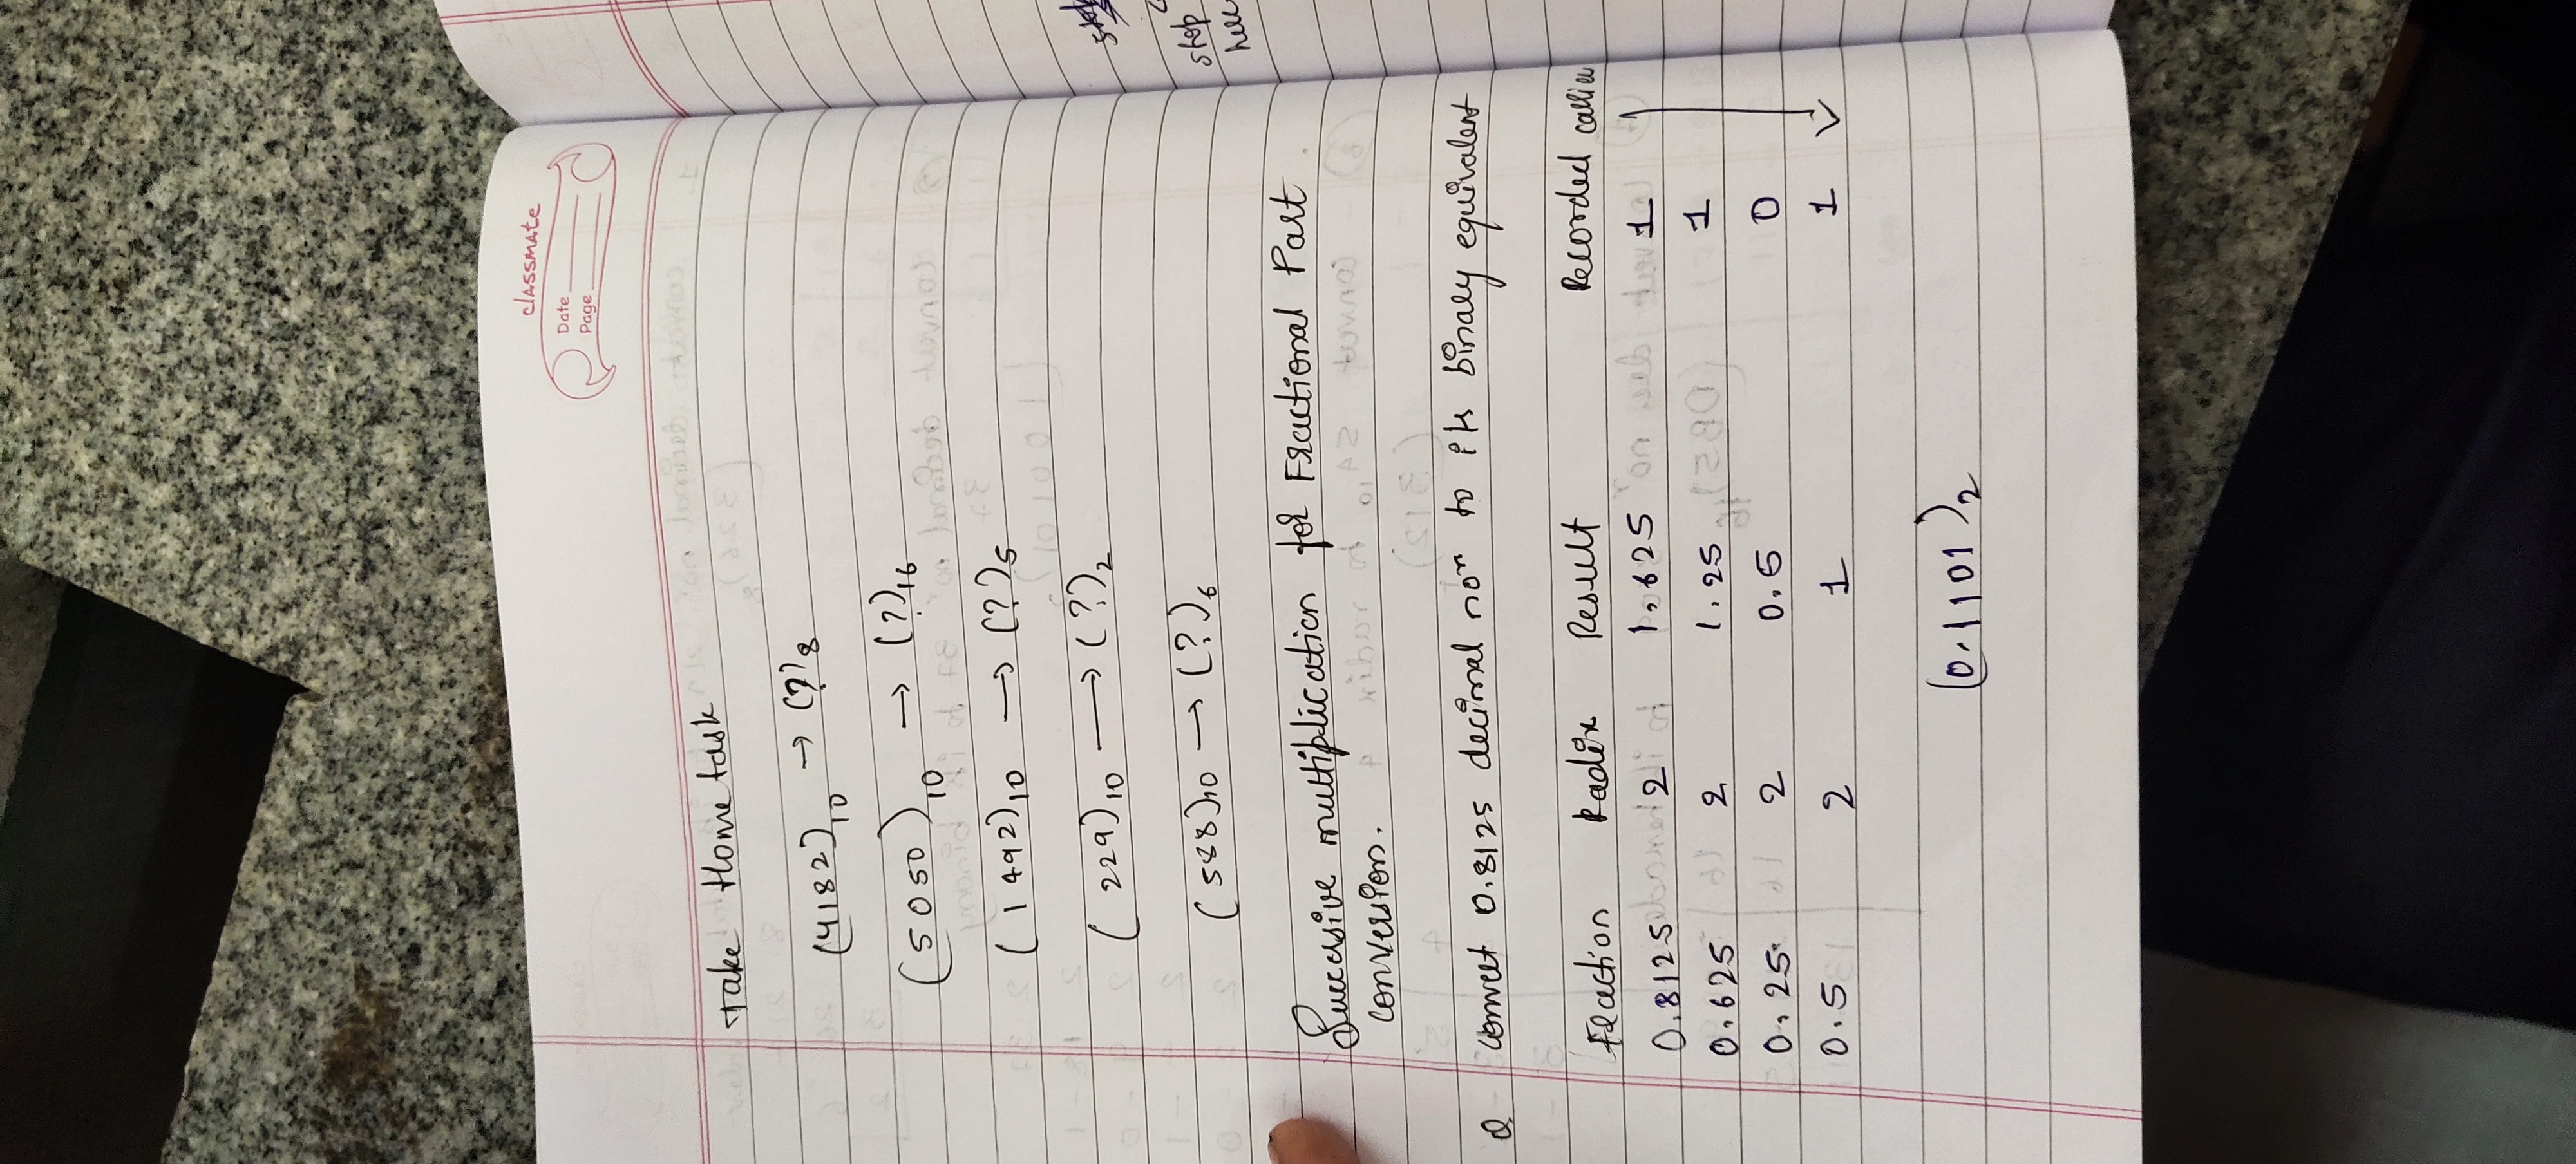 classmate
Date
Page
Take Home task
(4182)10 → (?)8
(5050)10 → (?)16
(1492)10 → (?)5
(229)10 → (?)2
(588)10 → (?)6
stop
here
Successive multiplication for Fractional Part
conversion.
Q convert 0.8125 decimal noⁿ to its binary equivalent
Fraction Radix Result Recorded carries
0.8125 2 1.625 1
0.625 2 1.25 1
0.25 2 0.5 0
0.5 2 1 1
(0.1101)2